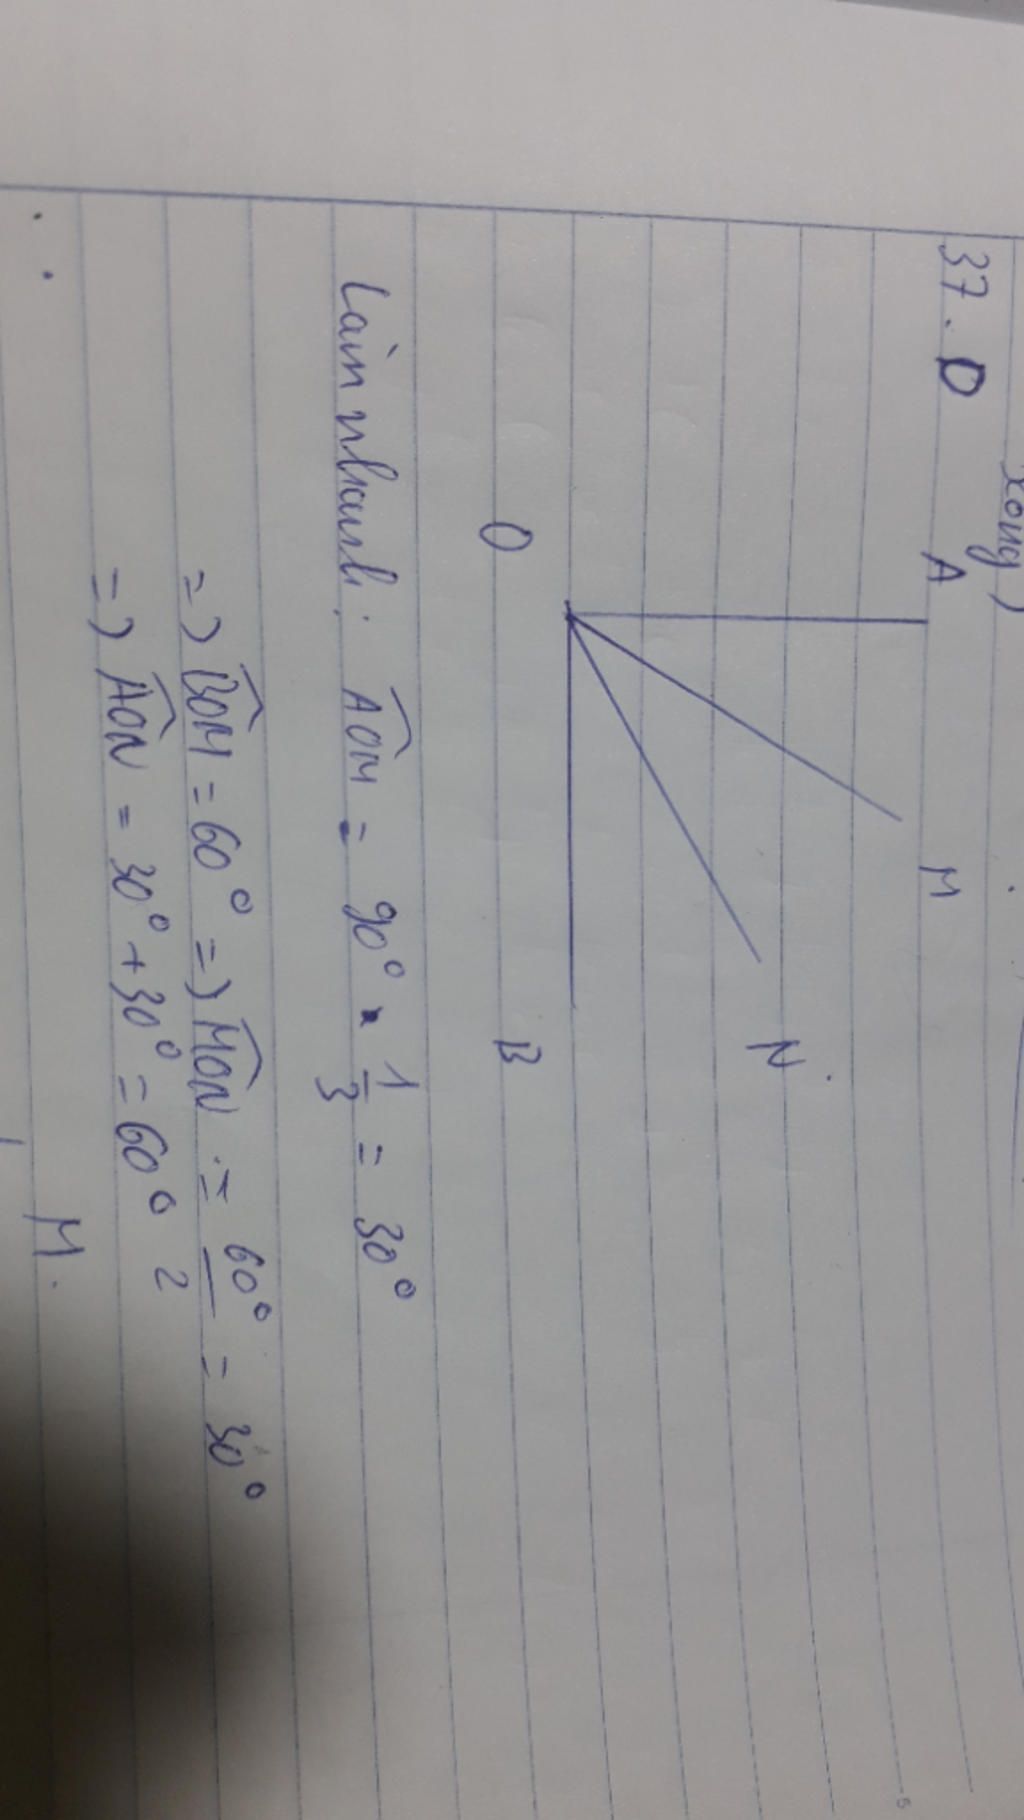 xong)
37. D
A
M
N.
O
B
Làm nhanh: AOM = 90° . 1/3 = 30°
=) BOM = 60° =) MON = 60°/2 = 30°
=) AON = 30° + 30° = 60°
M.